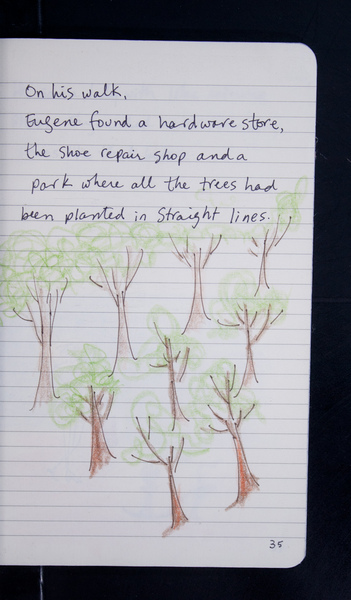 On his walk,
Eugene found a hardware store,
the shoe repair shop and a
park where all the trees had
been planted in straight lines.
35